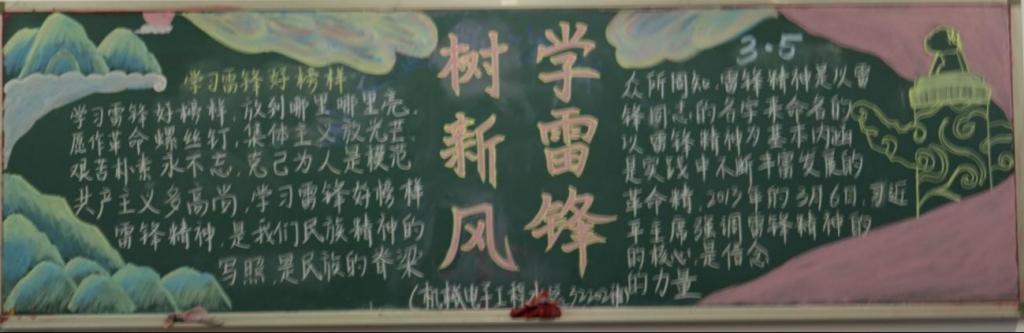 学雷锋
树新风
3·5
学习雷锋好榜样
学习雷锋好榜样,放到哪里哪里亮,
愿作革命螺丝钉,集体主义放光芒
艰苦朴素永不忘,克己为人是模范
共产主义多高尚,学习雷锋好榜样
雷锋精神,是我们民族精神的
写照,是民族的脊梁
众所周知,雷锋精神是以雷
锋同志的名字来命名的
以雷锋精神为基本内涵
是实践中不断丰富发展的
革命精,2013年的3月6日,习近
平主席强调雷锋精神的
的核心,是信念
的力量
(机械电子工程